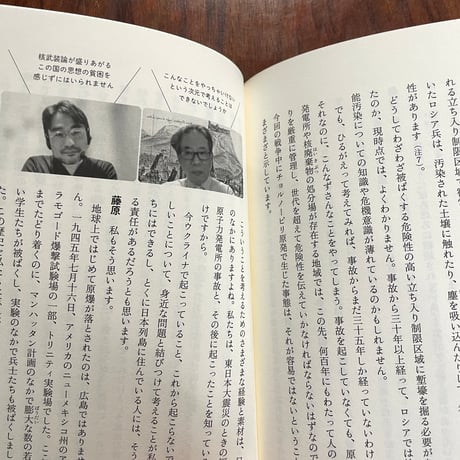 れる立ち入り制限区域
いたロシア兵は、汚染された土壌に触れたり、塵を吸い込んだ
性があります（注7）。
どうしてわざわざ被ばくする危険性の高い立ち入り制限区域に塹壕を掘る必要が
たのか、現時点では、よくわかりません。事故から三十年以上経って、ロシアでは
能汚染についての知識や危機意識が薄れているのかもしれません。
でも、ひるがえって考えてみれば、事故からまだ三十五年しか経っていないわけ
それなのに、こんなずさんなことをやってしまう。事故を起こしていなくても、原
発電所や核廃棄物の処分場が存在する地域では、この先、何百年にもわたって人の
りを厳重に管理し、世代を超えて危険性を伝えていかなければならないはずなの
今回の戦争中にチョルノービリ原発で生じた事態は、それが容易ではないというこ
まざまざと示しています。
こんなことをやっちゃいけない
という次元で考えることは
できないでしょうか
核武装論が盛りあがる
この国の思想の貧困を
感じずにはいられません
こういうことを考えるためのさまざまな経験と素材は、日
のなかにありますよね。私たちは、東日本大震災のときの
原子力発電所の事故と、その後に起こったことを知ってい
けですから。
今ウクライナで起こっていること、これから起こらな
しいことについて、身近な問題と結びつけて考えることが
ちにはできるし、とくに日本列島に住んでいる人には、そう
る責任があるだろうとも思います。
藤原　私もそう思います。
地球上ではじめて原爆が落とされたのは、広島ではありま
ん。一九四五年七月十六日、アメリカのニューメキシコ州のア
ラモゴード爆撃試験場の一部、トリニティ実験場でした。こ
までたどり着くのに、マンハッタン計画のなかで膨大な数の若
い学生たちが被ばくし、実験のなかで兵士たちも被ばくしまし
た。この歴史を